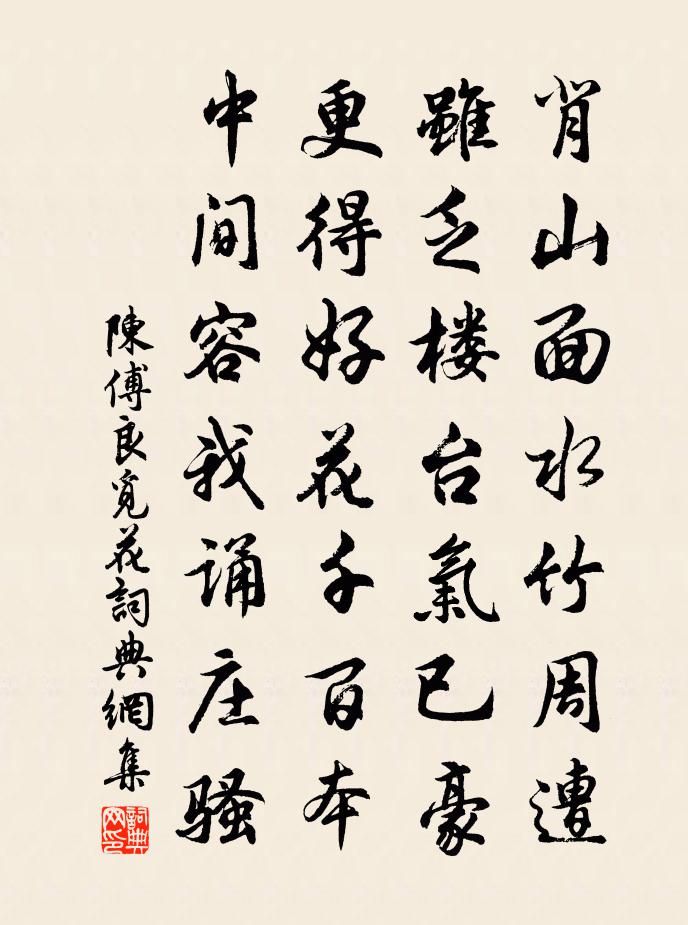 背山面水竹周遭
雖乏楼台氣已豪
更得好花千百本
中间容我诵庄骚
陳傅良覓花詞典網集
詞典网印